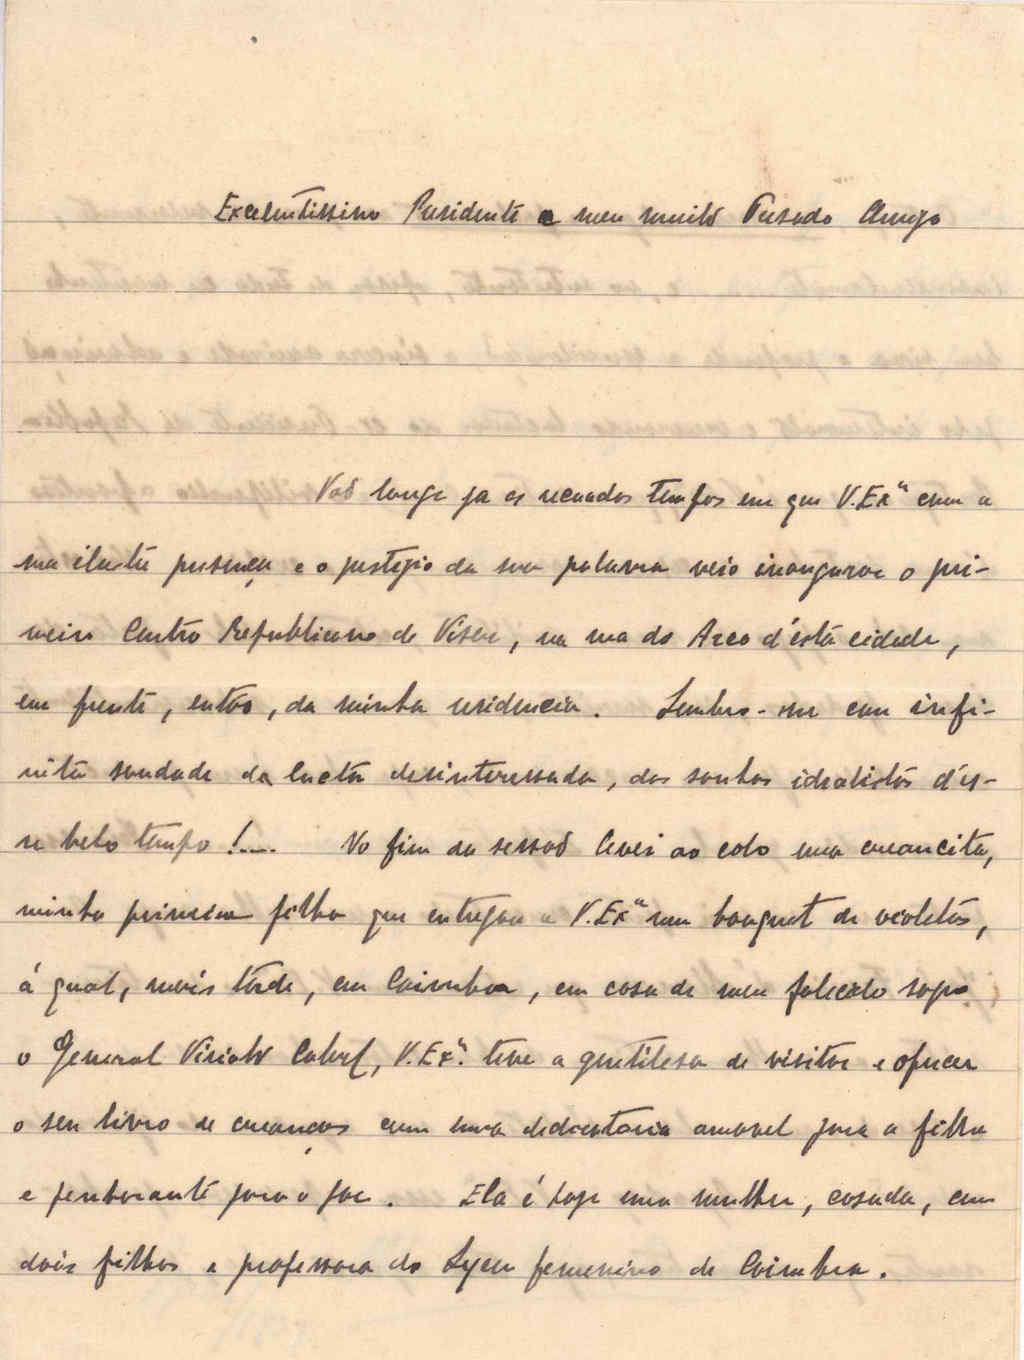 Excelentissimo Presidente e meu muito Presado Amigo
Vaõ longe ja os recuados tempos em que V. Exª com a
sua ilustre presença e o prestigio da sua palavra veio inaugurar o pri-
meiro Centro Republicano de Viseu, na rua do Arco d'esta cidade,
em frente, então, da minha residencia. Lembro-me com infi-
nita saudade da lucta desinteressada, dos sonhos idealistas d'es-
se belo tempo !.... No fim da sessaõ levei ao colo uma creancita,
minha primeira filha que entregou a V. Exª um bouquet de violetas,
á qual, mais tarde, em Coimbra, em casa de meu falecido sogro
o General Viriato Cabral, V. Exª. teve a gentilesa de visitar e oferecer
o seu livro de creanças com uma dedicatoria amavel para a filha
e penhorante para o pae. Ela é hoje uma mulher, casada, com
dois filhos e professora do Lyceu femenino de Coimbra.